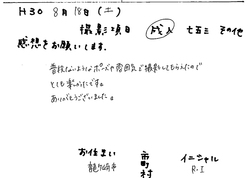 H30 8月18日(土)
撮影項目 成人 七五三 その他
感想をお願いします。
普段ないようなポーズや雰囲気で撮影をしてもらえたので
とても楽しかったです。
ありがとうございました。
お住まい 市町村 イニシャル
龍ケ崎市 R.I